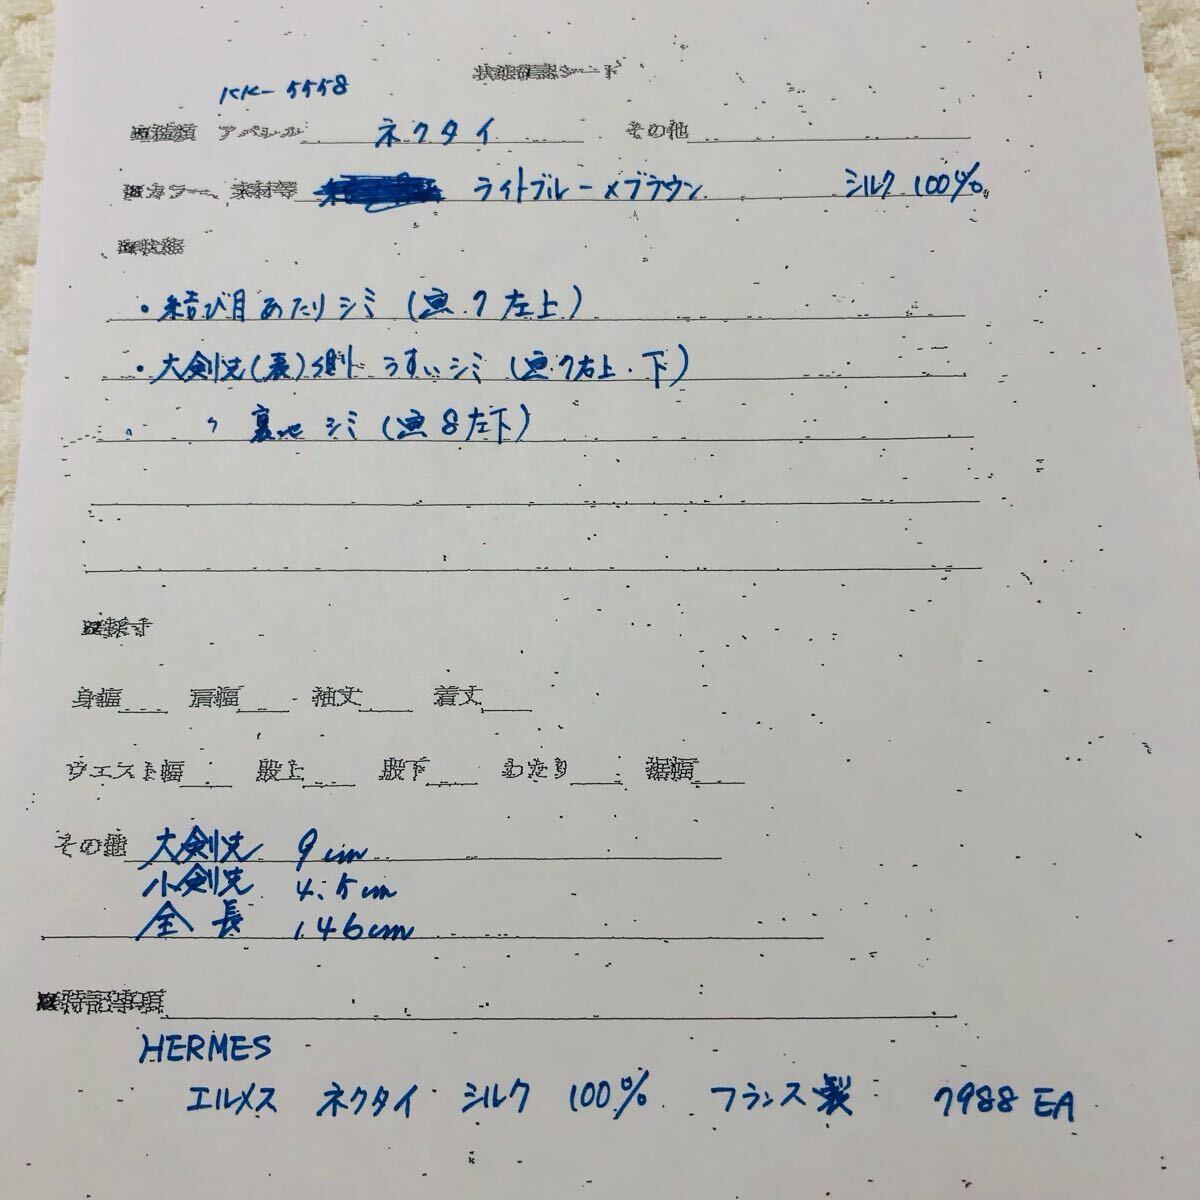 状態確認シート
KK-5558
■種類 アパレル ネクタイ その他
■カラー、素材等 ライトブルー×ブラウン シルク 100%
■状態
・結び目あたりシミ (画.7 左上)
・大剣先(表)側 うすいシミ (画.7右上.下)
〃 裏地 シミ (画 8左下)
■採寸
身幅 肩幅 袖丈 着丈
ウエスト幅 股上 股下 わたり 裾幅
その他 大剣先 9cm
小剣先 4.5cm
全長 146cm
■特記事項
HERMES
エルメス ネクタイ シルク 100% フランス製 7988 EA